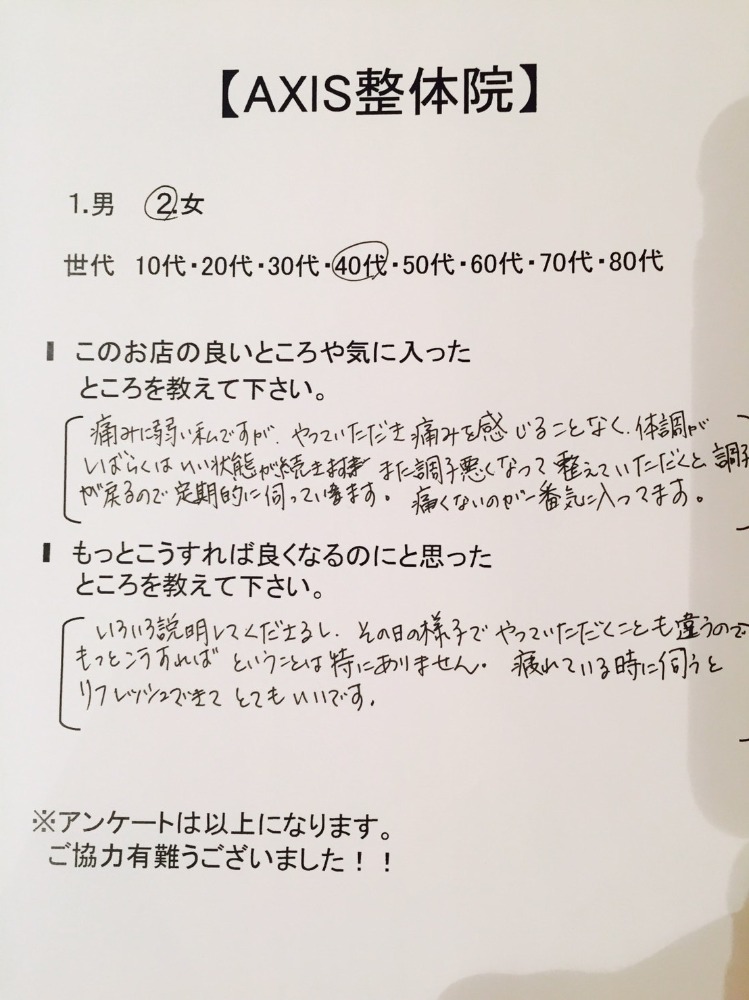 【AXIS整体院】
1.男　2.女
世代　10代・20代・30代・40代・50代・60代・70代・80代
このお店の良いところや気に入った
ところを教えて下さい。
痛みに弱い私ですが、やっていただき痛みを感じることなく、体調が
しばらくはいい状態が続きます また調子悪くなって整えていただくと調子
が戻るので定期的に伺っています。 痛くないのが一番気に入ってます。
もっとこうすれば良くなるのにと思った
ところを教えて下さい。
いろいろ説明してくださるし、その日の様子でやっていただくことも違うので
もっとこうすればということは特にありません。 疲れている時に伺うと
リフレッシュできてとてもいいです。
※アンケートは以上になります。
ご協力有難うございました！！